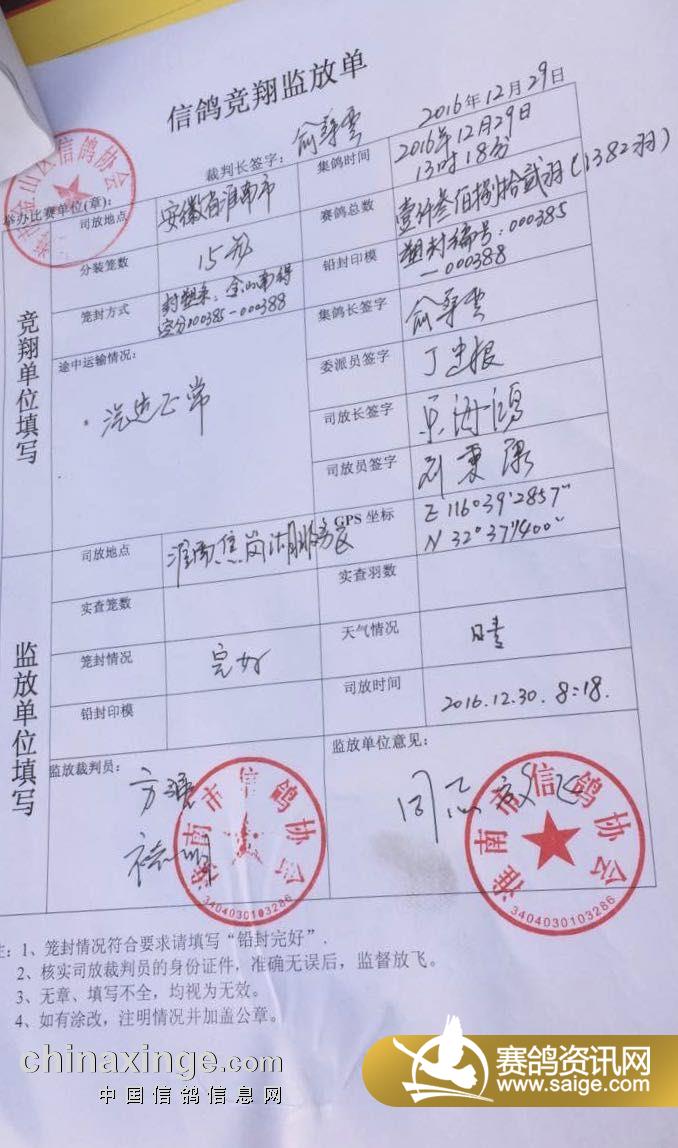 信鸽竞翔监放单
2016年12月29日
裁判长签字：
举办比赛单位(章)：
山区信鸽协会
竞翔单位填写
司放地点 安徽省淮南市
集鸽时间 2016年12月29日
13时18分
分装笼数 15
赛鸽总数 壹仟叁佰捌拾贰羽(1382羽)
笼封方式
铅封印模 塑封编号：000385
-000388
集鸽长签字
途中运输情况：
正常
委派员签字
司放长签字
司放员签字
监放单位填写
司放地点
GPS 坐标 E 116°39'2857"
N 32°37'400"
实查笼数
实查羽数
笼封情况 完好
天气情况 晴
铅封印模
司放时间 2016.12.30. 8:18.
监放裁判员：
监放单位意见：
同意放飞
淮南市信鸽协会
3404030103286
淮南市信鸽协会
3404030103286
注：1、笼封情况符合要求请填写“铅封完好”.
2、核实司放裁判员的身份证件，准确无误后，监督放飞。
3、无章、填写不全，均视为无效。
4、如有涂改，注明情况并加盖公章。
chinaxinge.com
中国信鸽信息网
赛鸽资讯网
www.saige.com